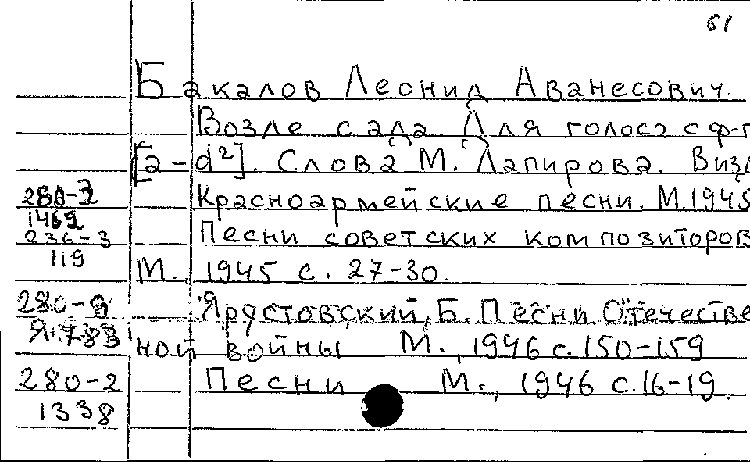 61
Бакалов Леонид Аванесович.
Возле сада. Для голоса с ф-п
[a-d²]. Слова М. Лапирова. В кн:
280-2 Красноармейские песни. М. 1945
1469
236-3 Песни советских композиторов
119 М. 1945 с. 27-30.
280-8 Ярустовский, Б. Песни Отечестве
Я.783 ной войны М., 1946 с. 150-159
280-2 Песни М., 1946 с. 16-19.
1338